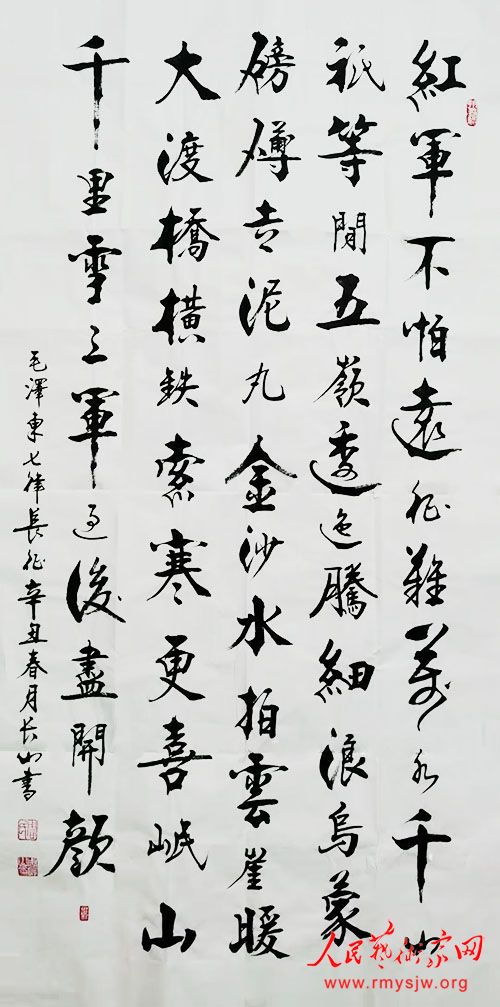 紅軍不怕遠征難萬水千山
祇等閒五嶺逶迤騰細浪烏蒙
磅礴走泥丸金沙水拍雲崖暖
大渡橋橫鉄索寒更喜岷山
千里雪三軍過後盡開顏
毛澤東七律長征辛丑春月长山書
人民藝術家网
www.rmysjw.org